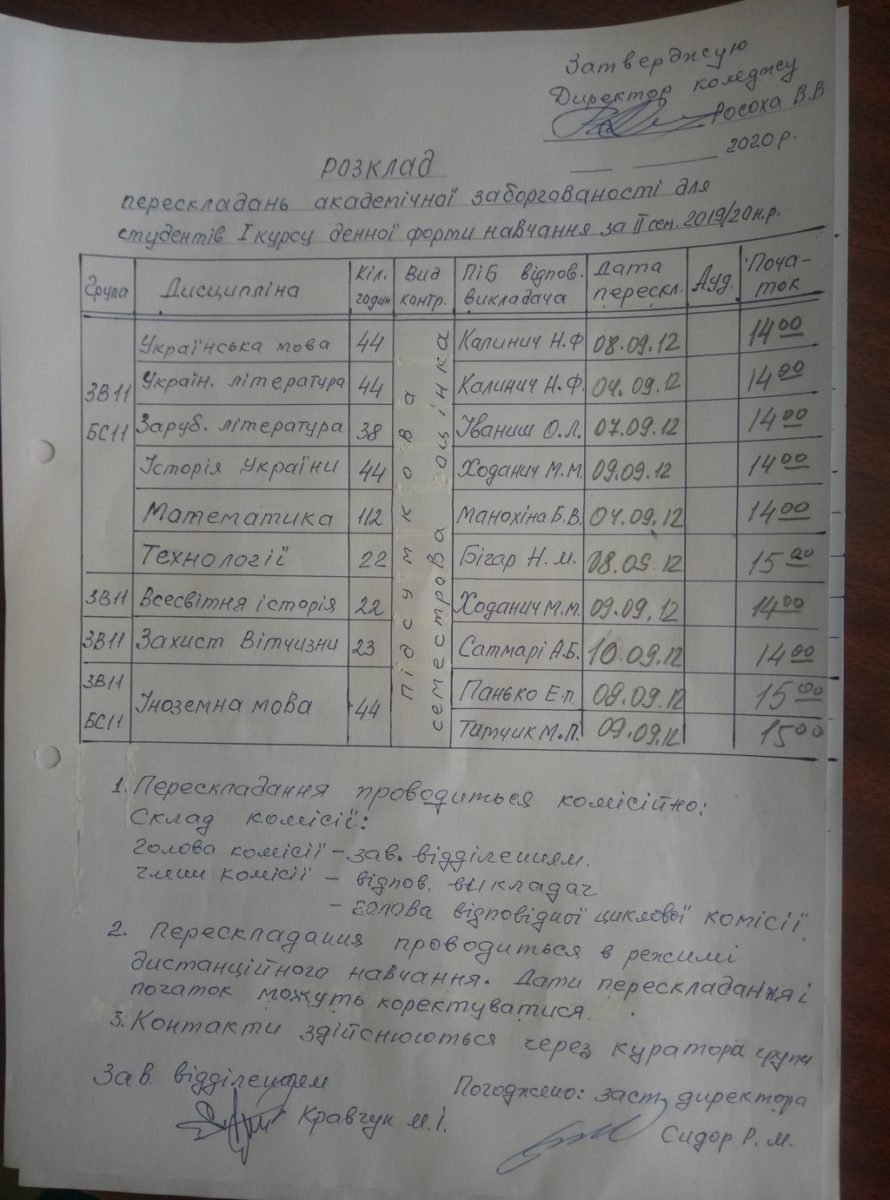 Затверджую
Директор коледжу
Росоха В.В
2020 р.
РОЗКЛАД
перескладань академічної заборгованості для
студентів І курсу денної форми навчання за ІІ сем. 2019/20 н.р.
Група Дисципліна Кіл. годин Вид контр. ПІБ відпов. викладача Дата перескл. Ауд. Поча-ток
ЗВ11 БС11
підсумкова семестрова оцінка
Українська мова 44 Калинич Н.Ф 08.09.12 14 00
Україн. література 44 Калинич Н.Ф. 04.09.12 14 00
Заруб. література 38 Іваниш О.Л. 07.09.12 14 00
Історія України 44 Ходанич М.М. 09.09.12 14 00
Математика 112 Манохіна Б.В. 04.09.12 14 00
Технології 22 Бігар Н.М. 08.09.12 15 00
ЗВ11 Всесвітня історія 22 Ходанич М.М. 09.09.12 14 00
ЗВ11 Захист Вітчизни 23 Сатмарі А.Б. 10.09.12 14 00
ЗВ11 БС11 Іноземна мова 44 Панько Е.п. 08.09.12 15 00
Тимчик М.П. 09.09.12 15 00
1. Перескладання проводиться комісійно:
Склад комісії:
голова комісії – зав. відділенням.
члени комісії – відпов. викладач
– голова відповідної циклової комісії.
2. Перескладання проводиться в режимі
дистанційного навчання. Дати перескладання і
початок можуть коректуватися.
3. Контакти здійснюються через куратора групи
Зав. відділенням
Кравчук М.І.
Погоджено: заст. директора
Сидор Р.М.